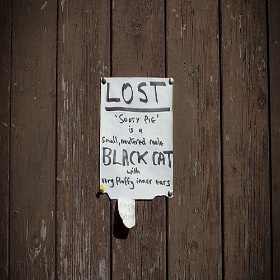 LOST
"SOOTY PIE"
is a
small, neutered male
BLACK CAT
with
very fluffy inner ears